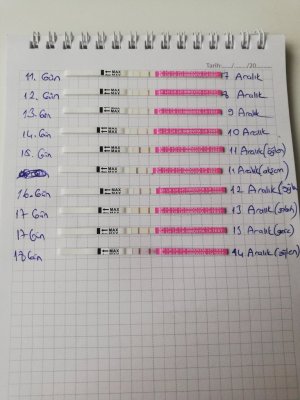 Tarih: / /20
11. Gün MAX 7 Aralık
12. Gün MAX 8 Aralık
13. Gün MAX 9 Aralık
14. Gün MAX 10 Aralık
15. Gün MAX 11 Aralık (öğlen)
MAX 11 Aralık (akşam)
16. Gün MAX 12 Aralık (öğlen)
17 Gün MAX 13 Aralık
17. Gün MAX 13 Aralık (gece)
18 Gün MAX 14 Aralık (öğlen)